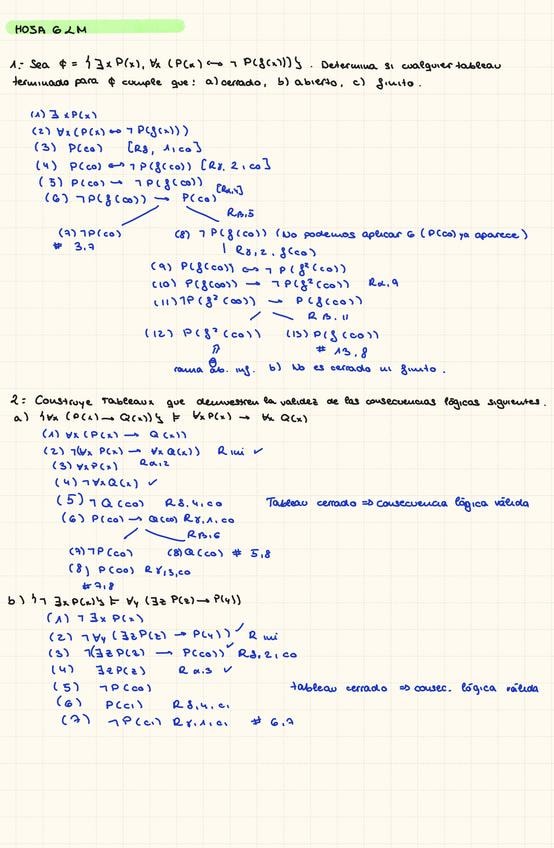 HOJA 6 LM
1.- Sea Φ = {∃xP(x), ∀x (P(x) ↔ ¬P(f(x)))}. Determina si cualquier tableau
terminado para Φ cumple que: a) cerrado, b) abierto, c) finito.
(1) ∃xP(x)
(2) ∀x(P(x) ↔ ¬P(f(x)))
(3) P(c0) [Rδ, 1, c0]
(4) P(c0) ↔ ¬P(f(c0)) [Rγ, 2, c0]
(5) P(c0) → ¬P(f(c0)) [Rα,4]
(6) ¬P(f(c0)) → P(c0)
Rβ,5
(7) ¬P(c0) (8) ¬P(f(c0)) (No podemos aplicar 6 (P(c0) ya aparece)
# 3,7 | Rγ,2, f(c0)
(9) P(f(c0)) ↔ ¬P(f²(c0))
(10) P(f(c0)) → ¬P(f²(c0)) Rα,9
(11) ¬P(f²(c0)) → P(f(c0))
Rβ,11
(12) P(f²(c0)) (13) P(f(c0))
# 13,8
rama ab. inf. b) No es cerrado ni finito.
2.- Construye tableaux que demuestren la validez de las consecuencias lógicas siguientes.
a) {∀x (P(x) → Q(x))} ⊨ ∀xP(x) → ∀xQ(x)
(1) ∀x(P(x) → Q(x))
(2) ¬(∀xP(x) → ∀xQ(x)) Rini ✓
(3) ∀xP(x) Rα,2
(4) ¬∀xQ(x) ✓
(5) ¬Q(c0) Rδ,4,c0 Tableau cerrado ⇒ consecuencia lógica válida
(6) P(c0) → Q(c0) Rγ,1,c0
Rβ,6
(7) ¬P(c0) (8) Q(c0) # 5,8
(8) P(c0) Rγ,3,c0
# 7,8
b) {¬∃xP(x)} ⊨ ∀y (∃zP(z) → P(y))
(1) ¬∃xP(x)
(2) ¬∀y (∃zP(z) → P(y)) ✓ Rini
(3) ¬(∃zP(z) → P(c0)) ✓ Rδ,2,c0
(4) ∃zP(z) Rα,3 ✓
(5) ¬P(c0) tableau cerrado ⇒ consec. lógica válida
(6) P(c1) Rδ,4,c1
(7) ¬P(c1) Rγ,1,c1 # 6,7